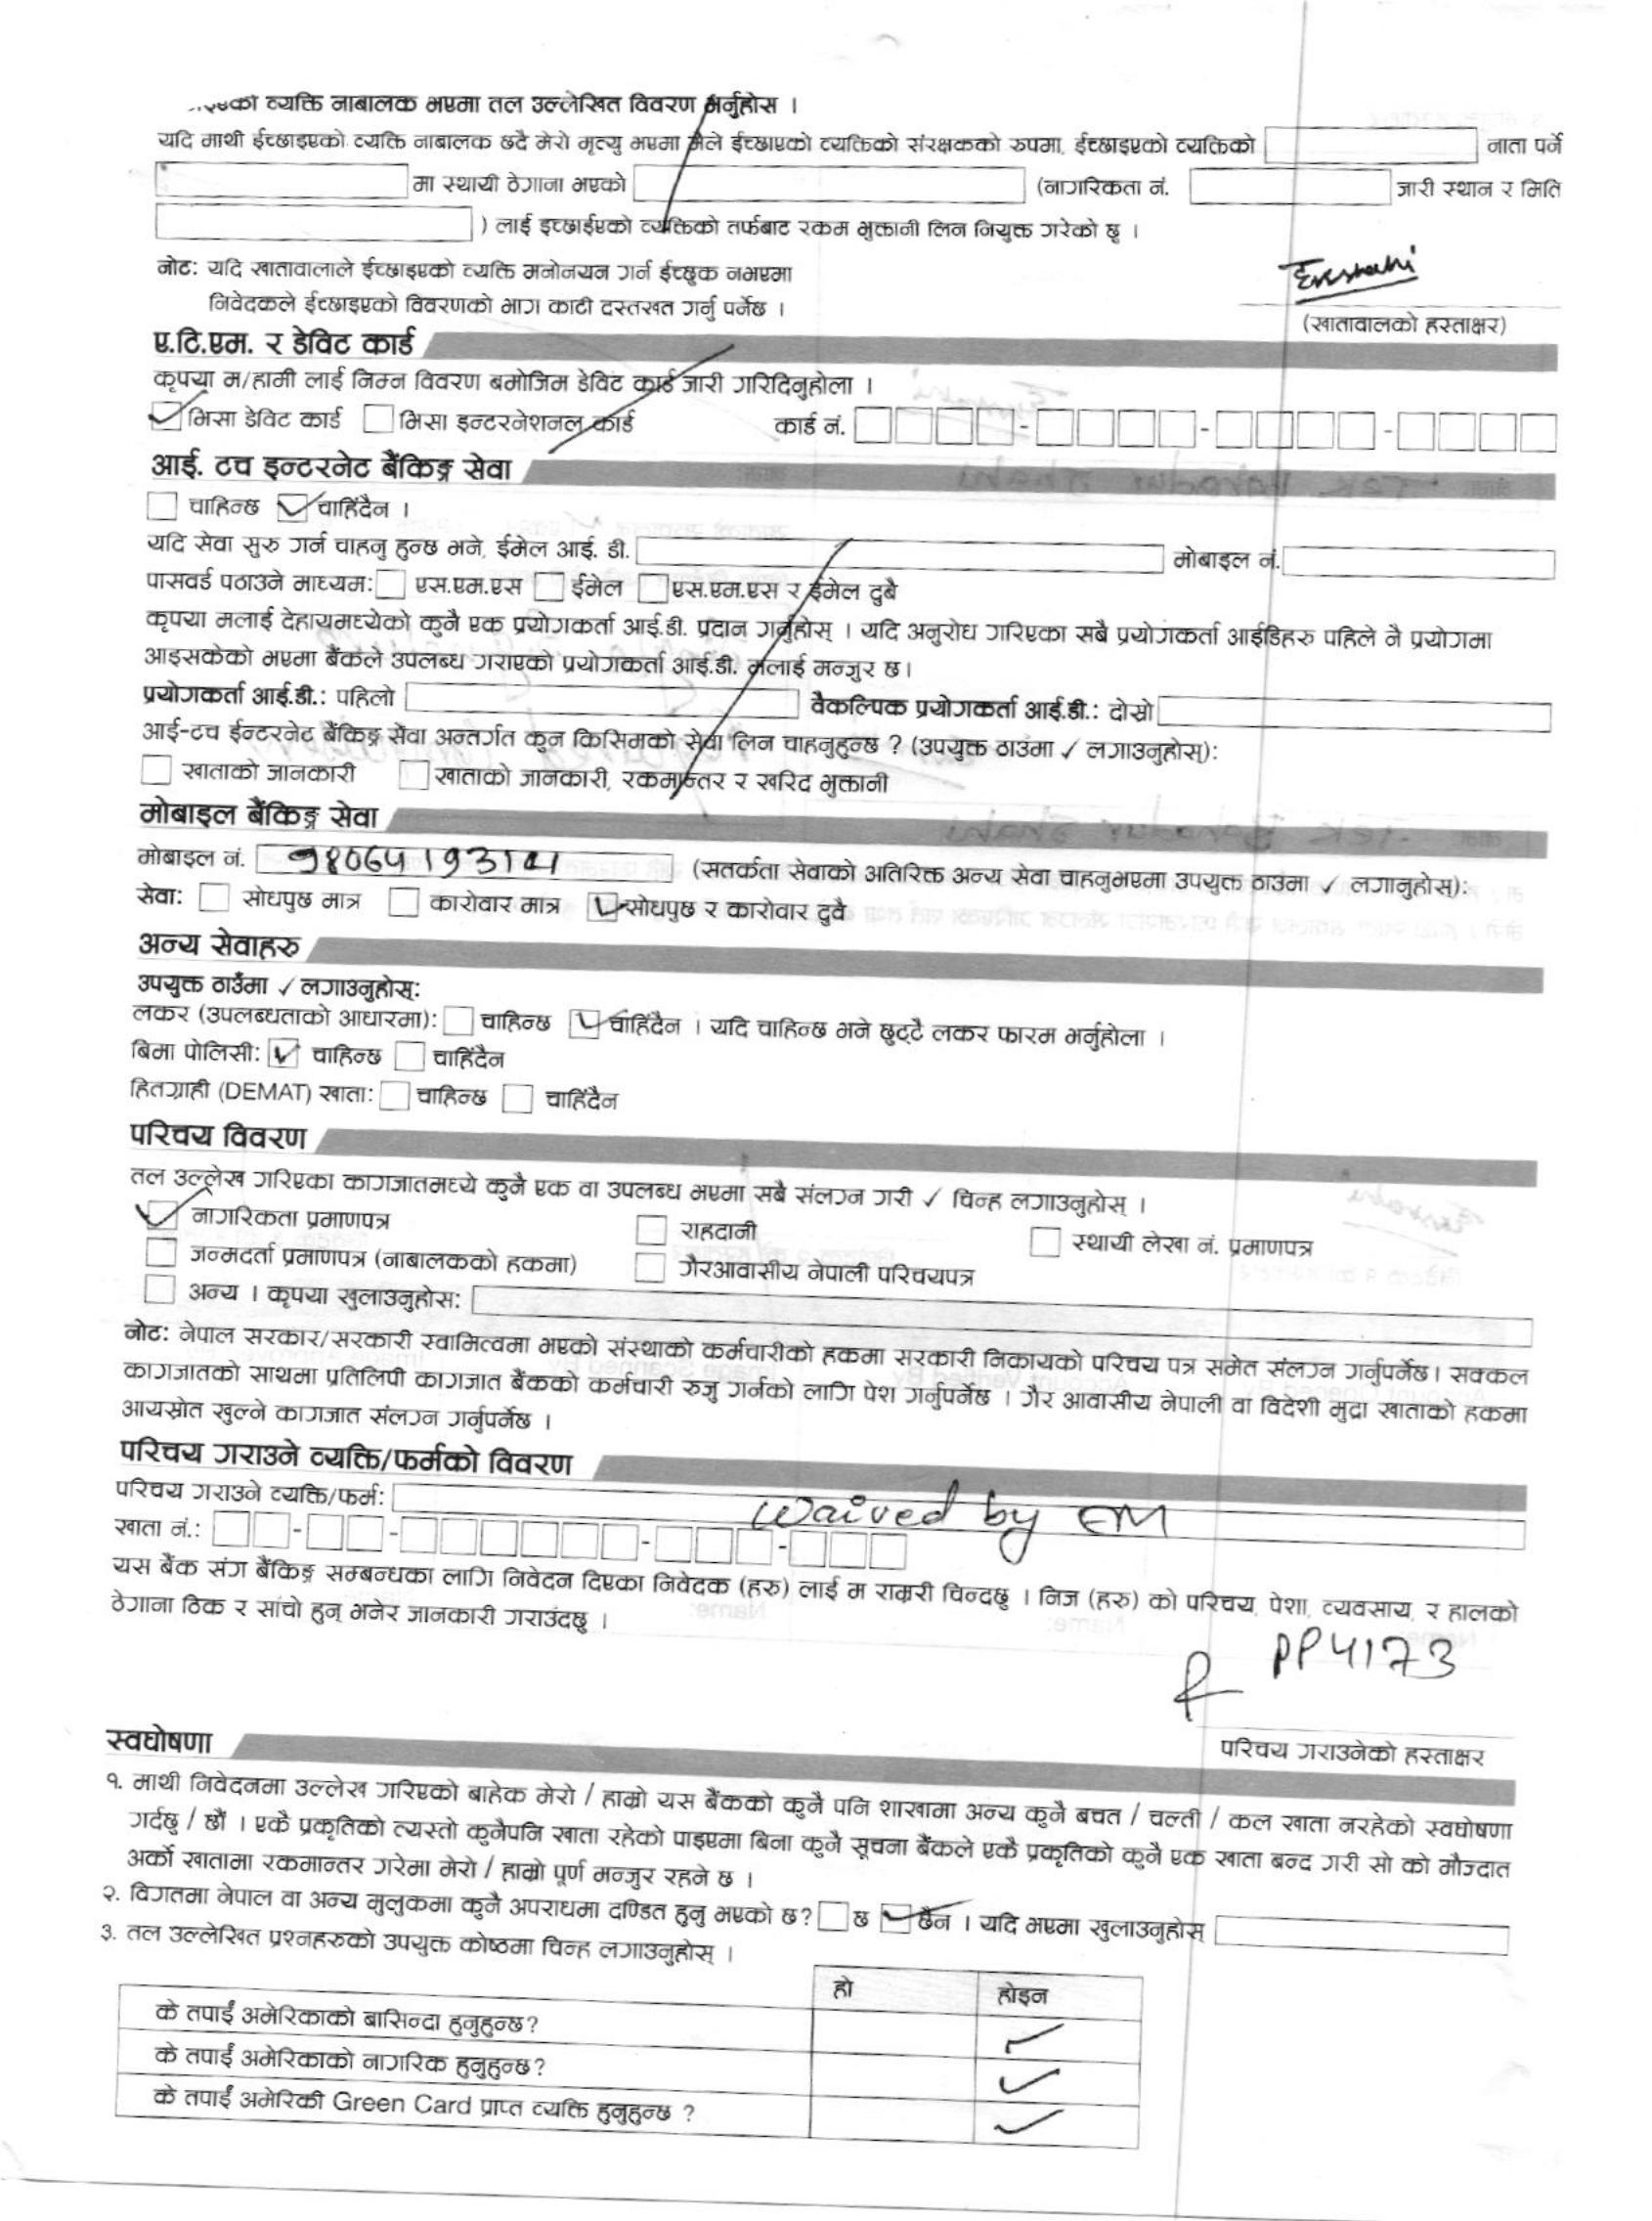 व्यक्ति नाबालक भएमा तल उल्लेखित विवरण भर्नुहोस ।
यदि माथी ईच्छाइएको व्यक्ति नाबालक छदै मेरो मृत्यु भएमा मैले ईच्छाएको व्यक्तिको संरक्षकको रुपमा, ईच्छाइएको व्यक्तिको नाता पर्ने
मा स्थायी ठेगाना भएको (नागरिकता नं. जारी स्थान र मिति
) लाई इच्छाईएको व्यक्तिको तर्फबाट रकम भुक्तानी लिन नियुक्त गरेको छु ।
नोट: यदि खातावालाले ईच्छाइएको व्यक्ति मनोनयन गर्न ईच्छुक नभएमा
निवेदकले ईच्छाइएको विवरणको भाग काटी दस्तखत गर्नु पर्नेछ ।
(खातावालको हस्ताक्षर)
ए.टि.एम. र डेविट कार्ड
कृपया म/हामी लाई निम्न विवरण बमोजिम डेविट कार्ड जारी गरिदिनुहोला ।
भिसा डेविट कार्ड भिसा इन्टरनेशनल कार्ड कार्ड नं. - - -
आई. टच इन्टरनेट बैंकिङ्ग सेवा
चाहिन्छ चाहिंदैन ।
यदि सेवा सुरु गर्न चाहनु हुन्छ भने, ईमेल आई. डी. मोबाइल नं.
पासवर्ड पठाउने माध्यम: एस.एम.एस ईमेल एस.एम.एस र ईमेल दुबै
कृपया मलाई देहायमध्येको कुनै एक प्रयोगकर्ता आई.डी. प्रदान गर्नुहोस् । यदि अनुरोध गरिएका सबै प्रयोगकर्ता आईडिहरु पहिले नै प्रयोगमा
आइसकेको भएमा बैंकले उपलब्ध गराएको प्रयोगकर्ता आई.डी. मलाई मन्जुर छ।
प्रयोगकर्ता आई.डी.: पहिलो वैकल्पिक प्रयोगकर्ता आई.डी.: दोस्रो
आई-टच ईन्टरनेट बैंकिङ्ग सेवा अन्तर्गत कुन किसिमको सेवा लिन चाहनुहुन्छ ? (उपयुक्त ठाउंमा ✓ लगाउनुहोस्):
खाताको जानकारी खाताको जानकारी, रकमान्तर र खरिद भुक्तानी
मोबाइल बैंकिङ्ग सेवा
मोबाइल नं. (सतर्कता सेवाको अतिरिक्त अन्य सेवा चाहनुभएमा उपयुक्त ठाउंमा ✓ लगानुहोस्):
सेवा: सोधपुछ मात्र कारोवार मात्र सोधपुछ र कारोवार दुवै
अन्य सेवाहरु
उपयुक्त ठाउँमा ✓ लगाउनुहोस्:
लकर (उपलब्धताको आधारमा): चाहिन्छ चाहिंदैन । यदि चाहिन्छ भने छुट्टै लकर फारम भर्नुहोला ।
बिमा पोलिसी: चाहिन्छ चाहिंदैन
हितग्राही (DEMAT) खाता: चाहिन्छ चाहिंदैन
परिचय विवरण
तल उल्लेख गरिएका कागजातमध्ये कुनै एक वा उपलब्ध भएमा सबै संलग्न गरी ✓ चिन्ह लगाउनुहोस् ।
नागरिकता प्रमाणपत्र राहदानी स्थायी लेखा नं. प्रमाणपत्र
जन्मदर्ता प्रमाणपत्र (नाबालकको हकमा) गैरआवासीय नेपाली परिचयपत्र
अन्य । कृपया खुलाउनुहोस:
नोट: नेपाल सरकार/सरकारी स्वामित्वमा भएको संस्थाको कर्मचारीको हकमा सरकारी निकायको परिचय पत्र समेत संलग्न गर्नुपर्नेछ। सक्कल
कागजातको साथमा प्रतिलिपी कागजात बैंकको कर्मचारी रुजु गर्नको लागि पेश गर्नुपर्नेछ । गैर आवासीय नेपाली वा विदेशी मुद्रा खाताको हकमा
आयस्रोत खुल्ने कागजात संलग्न गर्नुपर्नेछ ।
परिचय गराउने व्यक्ति/फर्मको विवरण
परिचय गराउने व्यक्ति/फर्म: waived by
खाता नं.: - - - -
यस बैंक संग बैंकिङ्ग सम्बन्धका लागि निवेदन दिएका निवेदक (हरु) लाई म राम्ररी चिन्दछु । निज (हरु) को परिचय, पेशा, व्यवसाय, र हालको
ठेगाना ठिक र सांचो हुन् भनेर जानकारी गराउंदछु ।
PP4173
परिचय गराउनेको हस्ताक्षर
स्वघोषणा
१. माथी निवेदनमा उल्लेख गरिएको बाहेक मेरो / हाम्रो यस बैंकको कुनै पनि शाखामा अन्य कुनै बचत / चल्ती / कल खाता नरहेको स्वघोषणा
गर्दछु / छौं । एकै प्रकृतिको त्यस्तो कुनैपनि खाता रहेको पाइएमा बिना कुनै सूचना बैंकले एकै प्रकृतिको कुनै एक खाता बन्द गरी सो को मौज्दात
अर्को खातामा रकमान्तर गरेमा मेरो / हाम्रो पूर्ण मन्जुर रहने छ ।
२. विगतमा नेपाल वा अन्य मुलुकमा कुनै अपराधमा दण्डित हुनु भएको छ? छ छैन । यदि भएमा खुलाउनुहोस्
३. तल उल्लेखित प्रश्नहरुको उपयुक्त कोष्ठमा चिन्ह लगाउनुहोस् ।
हो होइन
के तपाईं अमेरिकाको बासिन्दा हुनुहुन्छ?
के तपाईं अमेरिकाको नागरिक हुनुहुन्छ?
के तपाईं अमेरिकी Green Card प्राप्त व्यक्ति हुनुहुन्छ ?